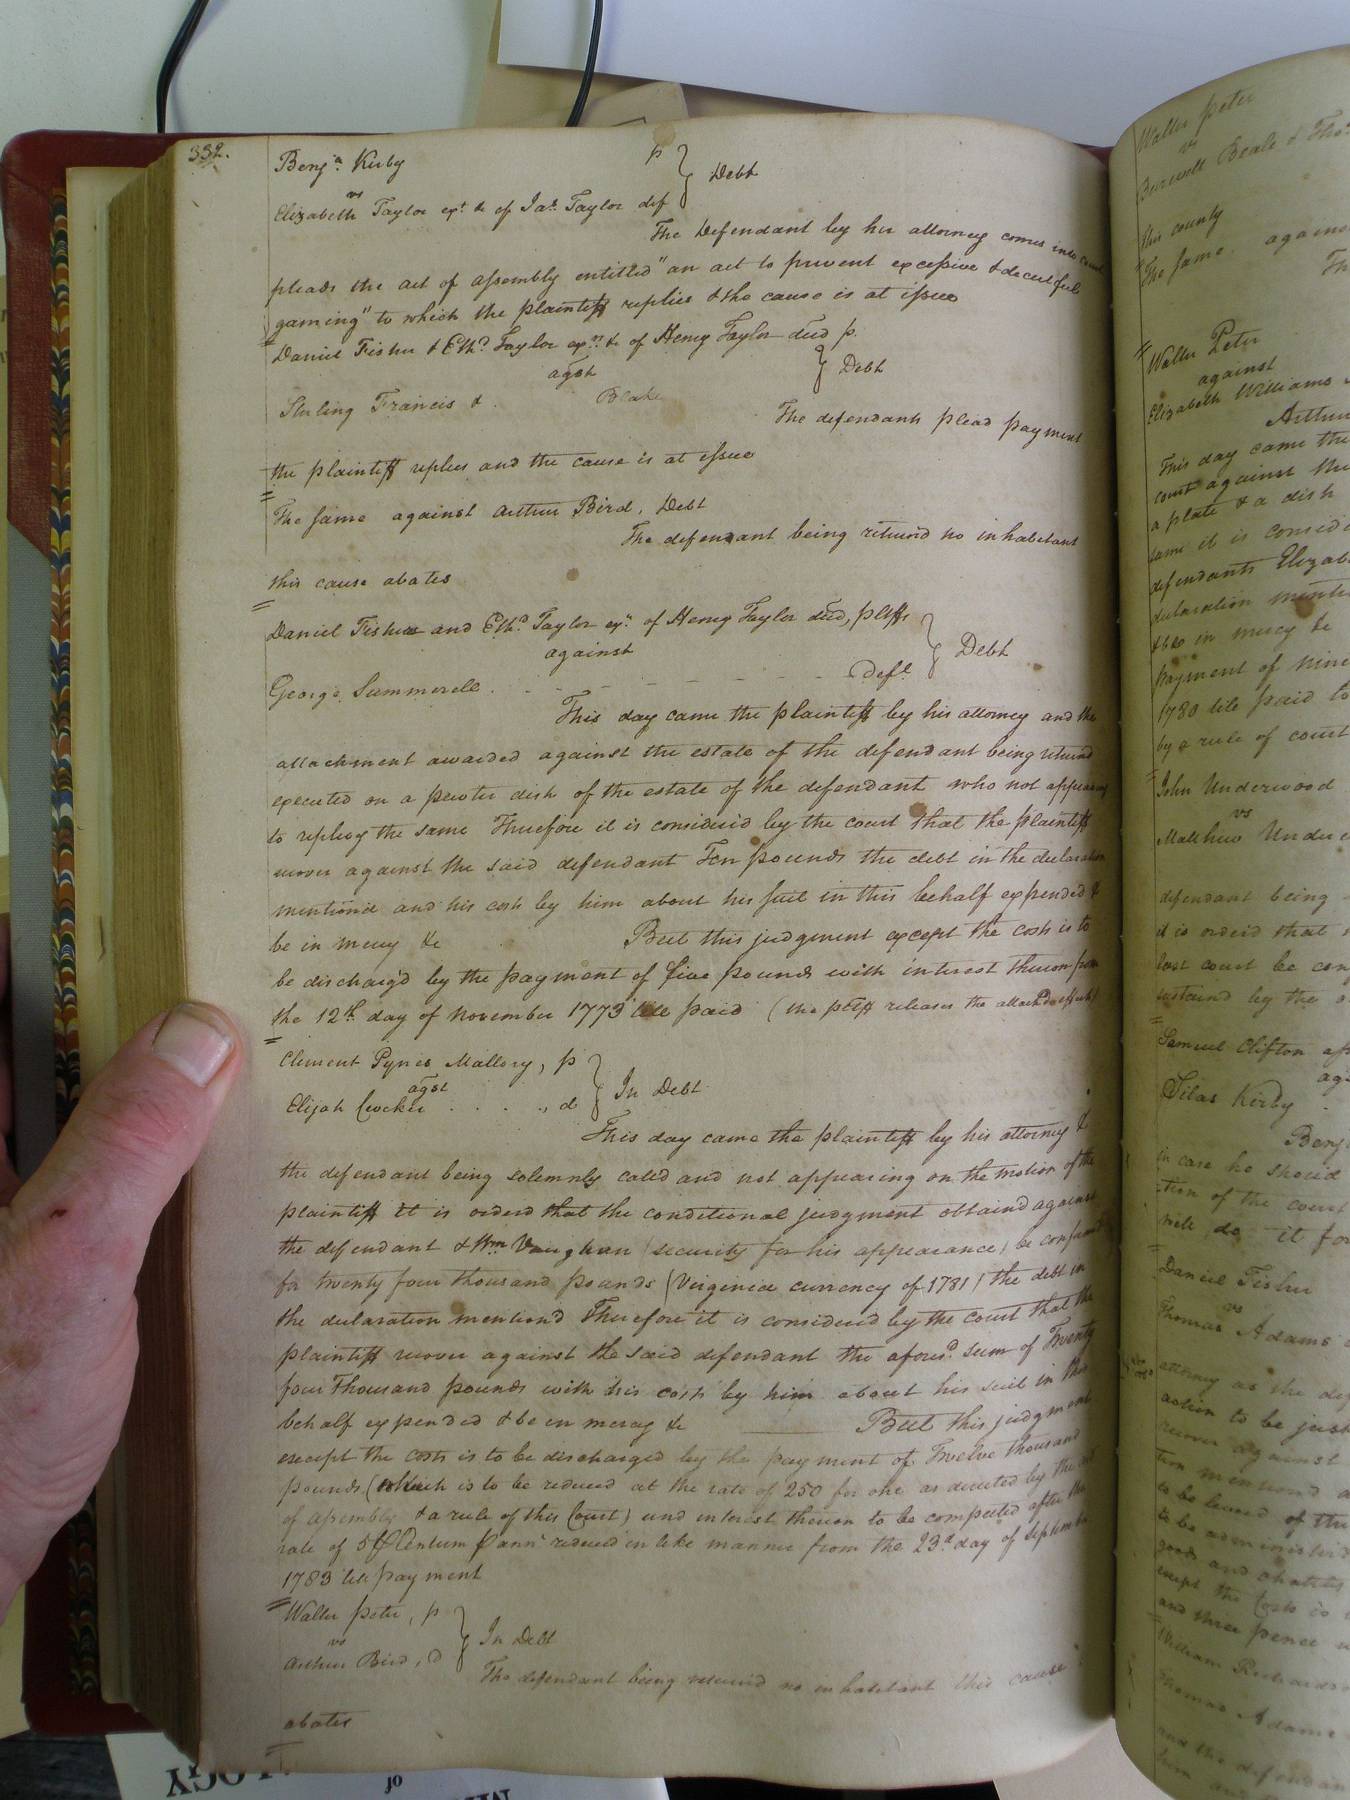 332.
Benj.a Kirby p
vs } Debt
Elizabeth Taylor ext. &c of Jas. Taylor def
The Defendant by her attorney comes into court
pleads the act of assembly entitled "an act to prevent excessive & deceitful
gaming" to which the plaintiff replies & the cause is at issue
Daniel Fisher & Eth.d Taylor exrs. &c of Henry Taylor decd p.
agst } Debt
Sterling Francis & Blake
The defendants plead payment
the plaintiff replies and the cause is at issue
The same against Arthur Bird, Debt
The defendant being returnd no inhabitant
this cause abates
Daniel Fisher and Eth.d Taylor exrs. of Henry Taylor decd, pltffs
against } Debt
George Summerell . - - - - - - - Deft.
This day came the plaintiff by his attorney and the
attachment awarded against the estate of the defendant being returnd
executed on a pewter dish of the estate of the defendant who not appearing
to replevy the same Therefore it is considerd by the court that the plaintiff
recover against the said defendant Ten pounds the debt in the declaration
mentiond and his costs by him about his suit in this behalf expended &
be in mercy &c But this judgment except the costs is to
be discharg'd by the payment of five pounds with interest thereon from
the 12th. day of November 1773 till paid (the pltff releases the attachd effects)
Clement Pynes Mallory, p
agst } In Debt
Elijah Crocker . . . ., d
This day came the plaintiff by his attorney &
the defendant being solemnly calld and not appearing on the motion of the
plaintiff it is orderd that the conditional judgment obtaind against
the defendant & Wm Vaughan (security for his appearance) be confirmd
for twenty four thousand pounds (Virginia currency of 1781) the debt in
the declaration mentiond Therefore it is considerd by the court that the
plaintiff recover against the said defendant the aforesd. sum of Twenty
four Thousand pounds with his costs by him about his suit in this
behalf expended & be in mercy &c But this judgment
except the costs is to be discharged by the payment of Twelve thousand
pounds (which is to be reduced at the rate of 250 for one as directed by the act
of assembly & a rule of this Court) and interest thereon to be computed after the
rate of 5 P Centum P ann reduced in like manner from the 23.d day of September
1783 till payment
Walter Peter, p
vs } In Debt
Arthur Bird, d
The defendant being returnd no inhabitant this cause
abates
Walter Peter
vs
Burwell Beale & Thos.
this county
The same against
Th
Walter Peter
against
Elizabeth Williams
Arthur
This day came the
court against the
a plate & a dish
same it is consid
defendants Elizab
declaration mentio
& be in mercy &c
payment of nine
1780 till paid to
by a rule of court
John Underwood
vs
Matthew Under
defendant being
it is orderd that
last court be con
sustaind by the
Samuel Clifton
ag
Silas Kirby
Benj
in case he should
tion of the court
will do it for
Daniel Fisher
vs
Thomas Adams
attorney as the def
action to be just
recover against
tion mentiond
to be levied of the
to be administerd
goods and chattels
except the costs is
and three pence
William Richardson
Thomas Adams
and the defendan
OF